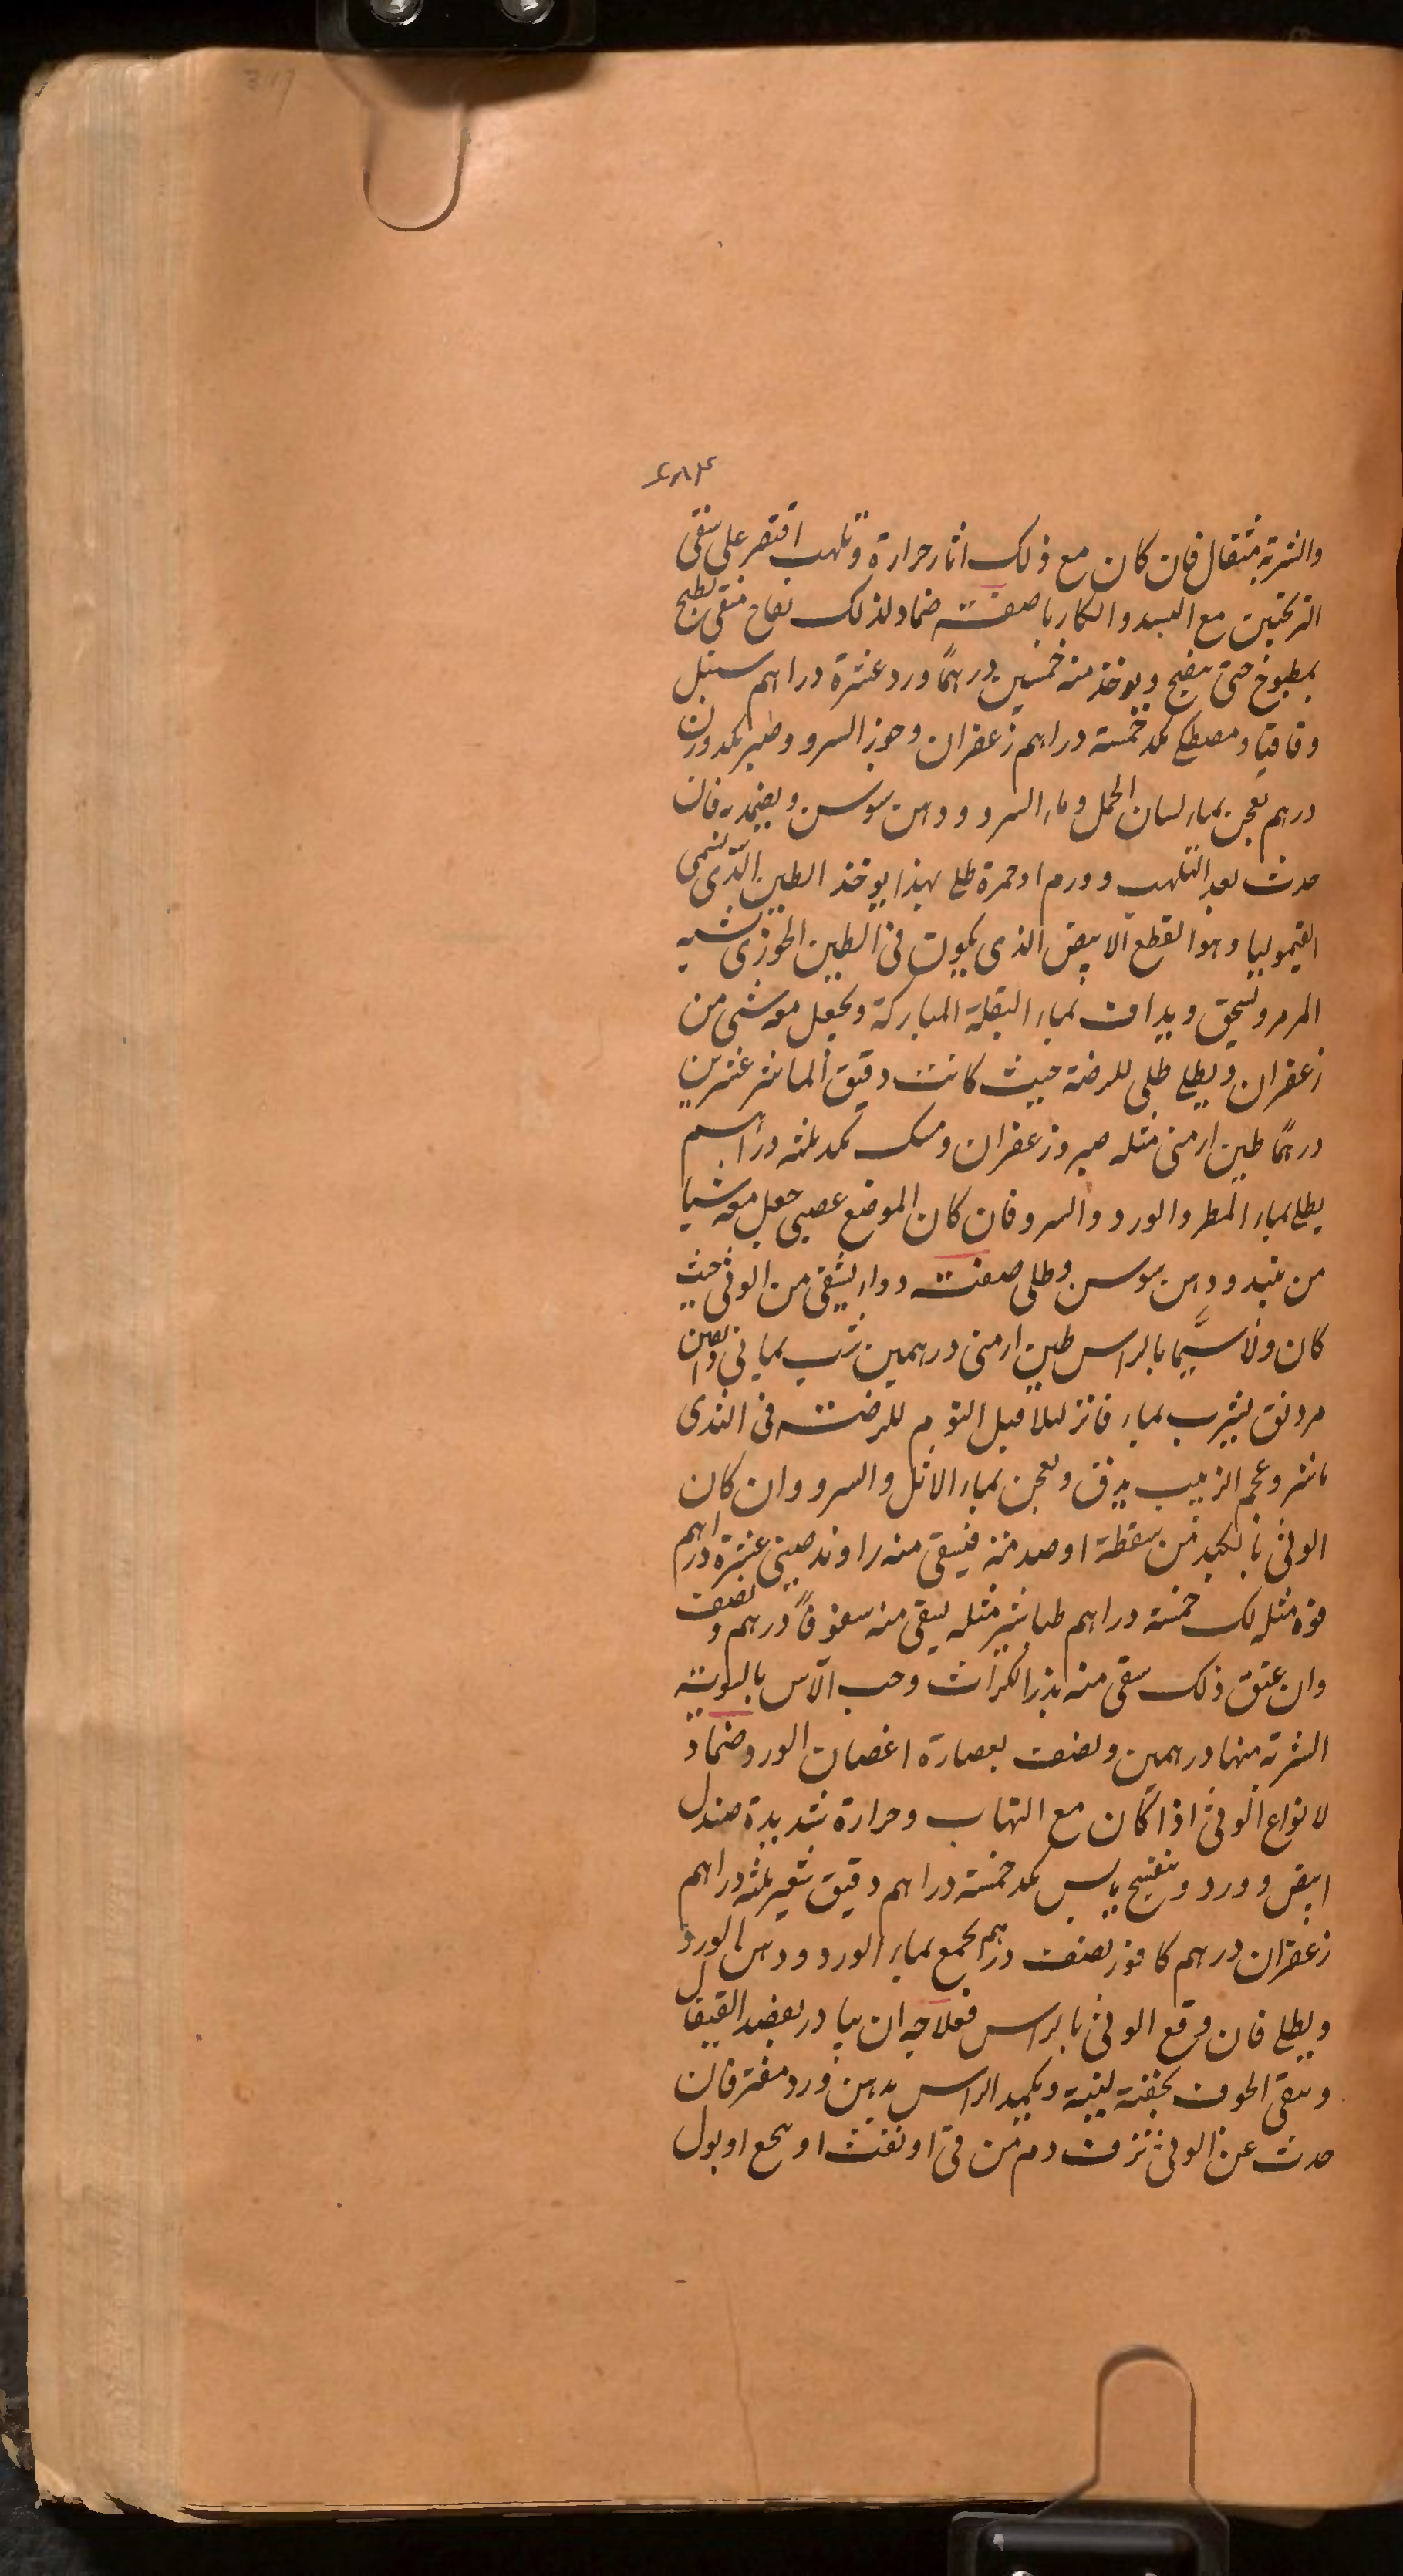 317
والشربة مثقال فان كان مع ذلك اثار حرارة وتلهب اقتصر على سقى
الترنجبين مع البسد والكاربا صفته ضماد لذلك تفاح منقى يطبخ
بمطبوخ حتى ينضج ويوخذ منه خمسين درهمًا ورد عشرة دراهم سنبل
وقاقيا ومصطكى بكد خمسة دراهم زعفران وجوز السرو وصبر بكد وزن
درهم يعجن بماء لسان الحمل وماء السرو ودهن سوسن ويضمد به فان
حدث بعد التلهب وورم اوحمرة طلى بهذا يوخذ الطين الذى يسمى
القيموليا وهو القطع الابيض الذى يكون فى الطين الخوزى شبه
المرمر ويسحق ويداف بماء البقلة المباركة ويجعل معه شى من
زعفران ويطلى طلى للرضة حيث كانت دقيق الماش عشرين
درهمًا طين ارمنى مثله صبر وزعفران ومسك بكد ثلثه دراهم
يطلى بماء المطر والورد والسرو فان كان الموضع عصبى جعل معه شيا
من نبيد ودهن سوسن وطلى صفت دواء يسقى من الوثى حيث
كان ولا سيّما بالراس طين ارمنى درهمين شب يمانى وانقين
مردنق يشرب بماء فاتر ليلا قبل النوم للرضت فى الثدى
ماش وعجم الزبيب يدق ويعجن بماء الاثل والسرو وان كان
الوثى بالكبد من سقطة اوصدمة فيسقى منه راوند صينى عشرة دراهم
فوه مثله لك خمسة دراهم طباشير مثله يسقى منه سفوفًا درهم ونصف
وان عتق ذلك سقى منه بذر الكراث وحب الآس بالسوية
الشربة منها درهمين ونصف بعصارة اغصان الورد ضماد
لانواع الوثى اذا كان مع التهاب وحرارة شديدة صندل
ابيض وورد وبنفسج يابس بكد خمسة دراهم دقيق شعير ثلثه دراهم
زعفران درهم كافور نصف درهم يجمع بماء الورد ودهن الورد
ويطلى فان وقع الوثى بالراس فعلاجه ان يبادر بفصد القيفال
وينقى الجوف بحقنة لينة ويكمد الراس بدهن ورد مفتر فان
حدث عن الوثى نزف دم من قئ اونفث اوسحج اوبول